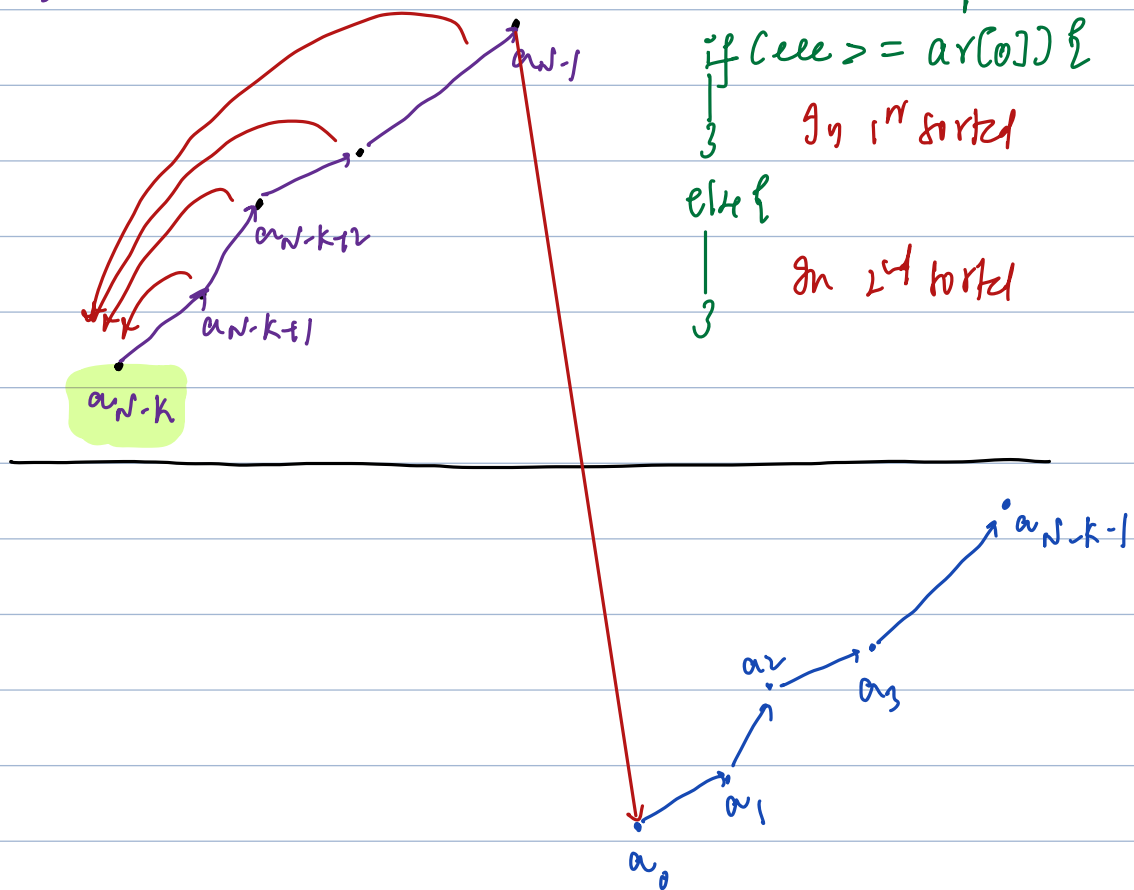 if (ele >= ar[0]) {
In 1st sorted
}
else {
In 2nd sorted
}
aN-1
aN-k+2
aN-k+1
aN-k
aN-k-1
a2
a3
a1
a0